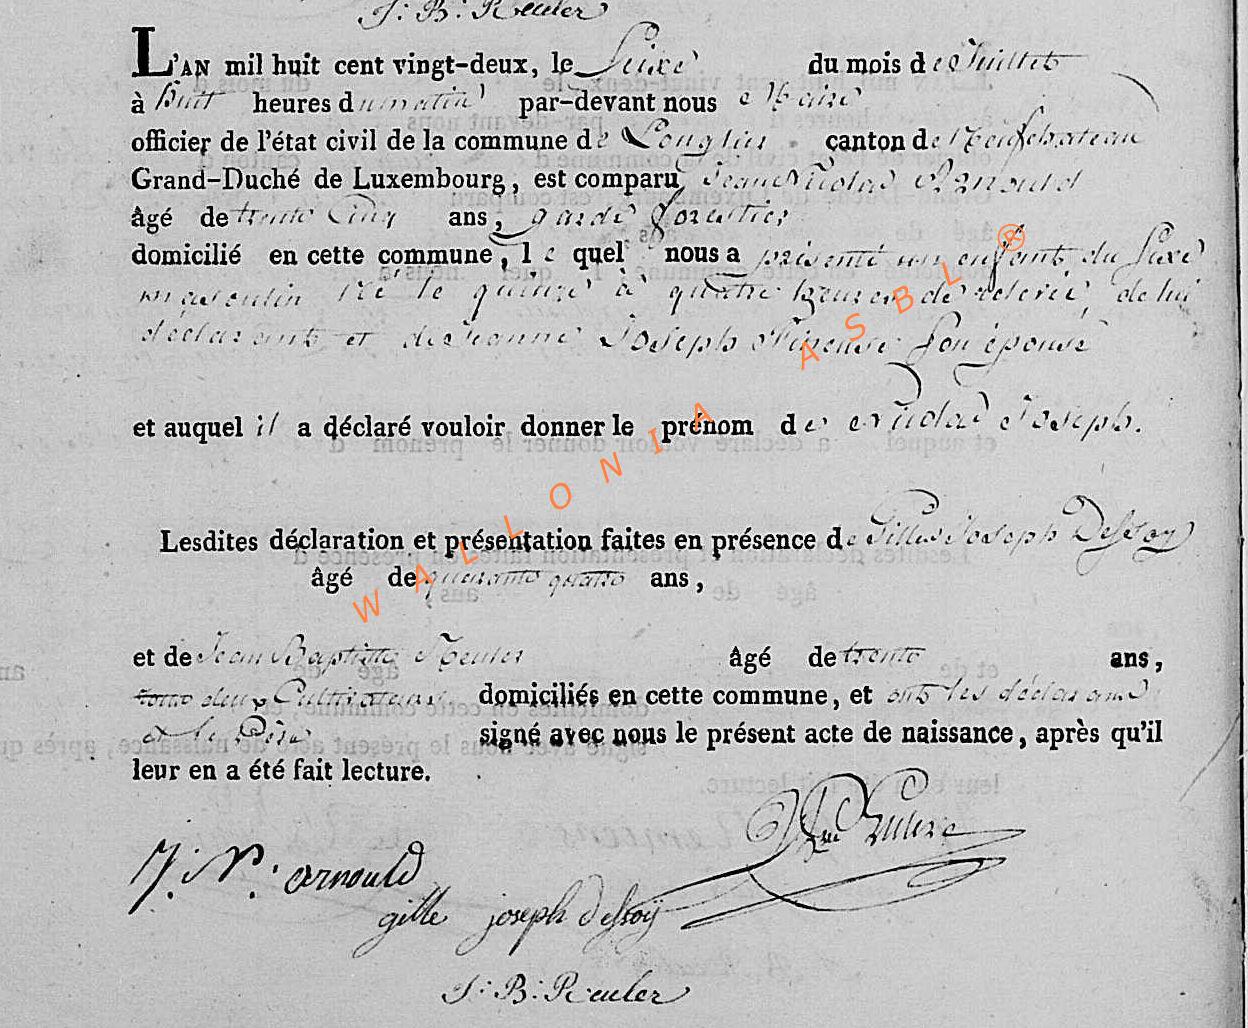 J: B: Reuler
L'AN mil huit cent vingt-deux, le Seize du mois de Juillet
à huit heures du matin par-devant nous Maire
officier de l'état civil de la commune de Longlier canton de Neufchateau
Grand-Duché de Luxembourg, est comparu Jean Nicolas Arnould
âgé de trente Cinq ans, garde forestier
domicilié en cette commune, le quel nous a présenté un enfant du Sexe
masculin Né le quinze à quatre heures de relevée de lui
déclarant et de Jeanne Joseph Son épouse
et auquel il a déclaré vouloir donner le prénom de Nicolas Joseph.
Lesdites déclaration et présentation faites en présence de Gilles Joseph Dessoy
âgé de quarante quatre ans,
et de Jean Baptiste Reuler âgé de trente ans,
tous deux Cultivateurs domiciliés en cette commune, et ont les déclarans
et le Père signé avec nous le présent acte de naissance, après qu'il
leur en a été fait lecture.
J. N. arnould
gille joseph dessoÿ
J: B: Reuler
WALLONIA ASBL ®